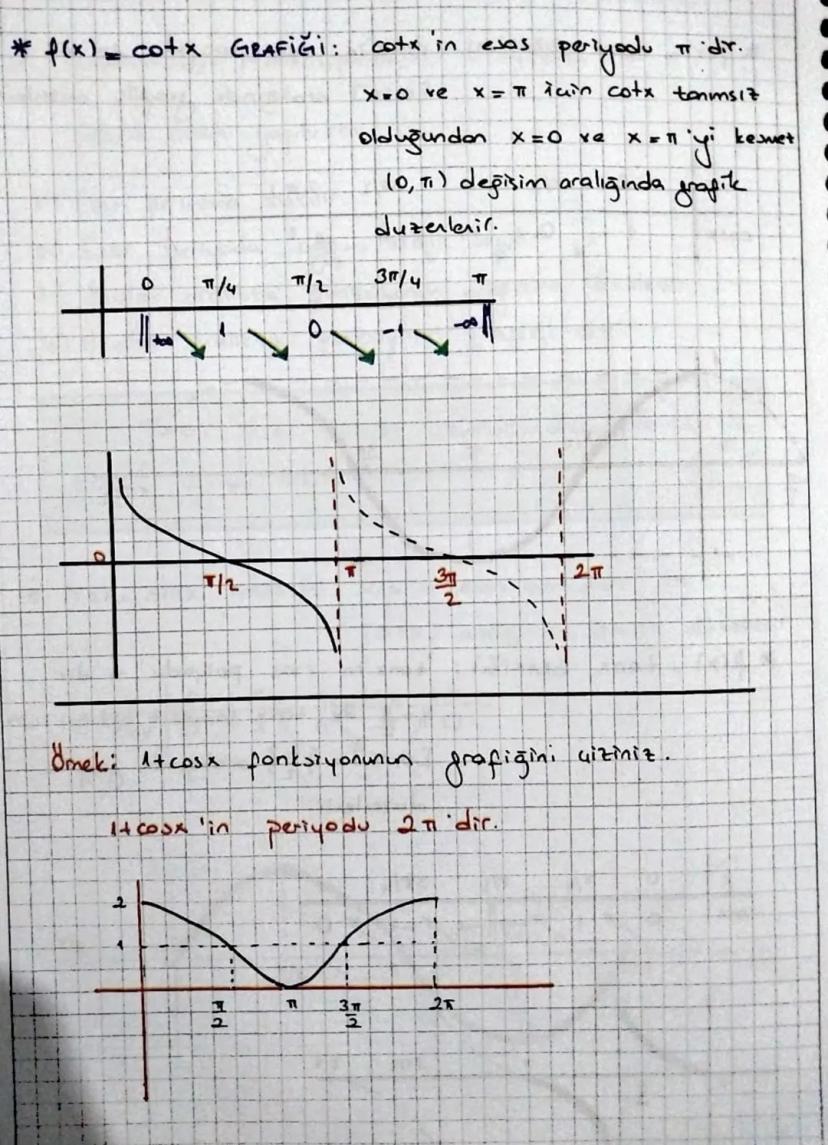 * f(x) = cotx GRAFİĞİ: cotx'in esas periyodu π'dir.
x=0 ve x=π için cotx tanımsız
olduğundan x=0 ve x=π'yi kesmez
(0, π) değişim aralığında grafik
düzenlenir.
0 π/4 π/2 3π/4 π
+∞ 1 0 -1 -∞
0 π/2 π 3π/2 2π
Örnek: 1+cosx fonksiyonunun grafiğini çiziniz.
1+cosx'in periyodu 2π'dir.
2
1
π/2 π 3π/2 2π